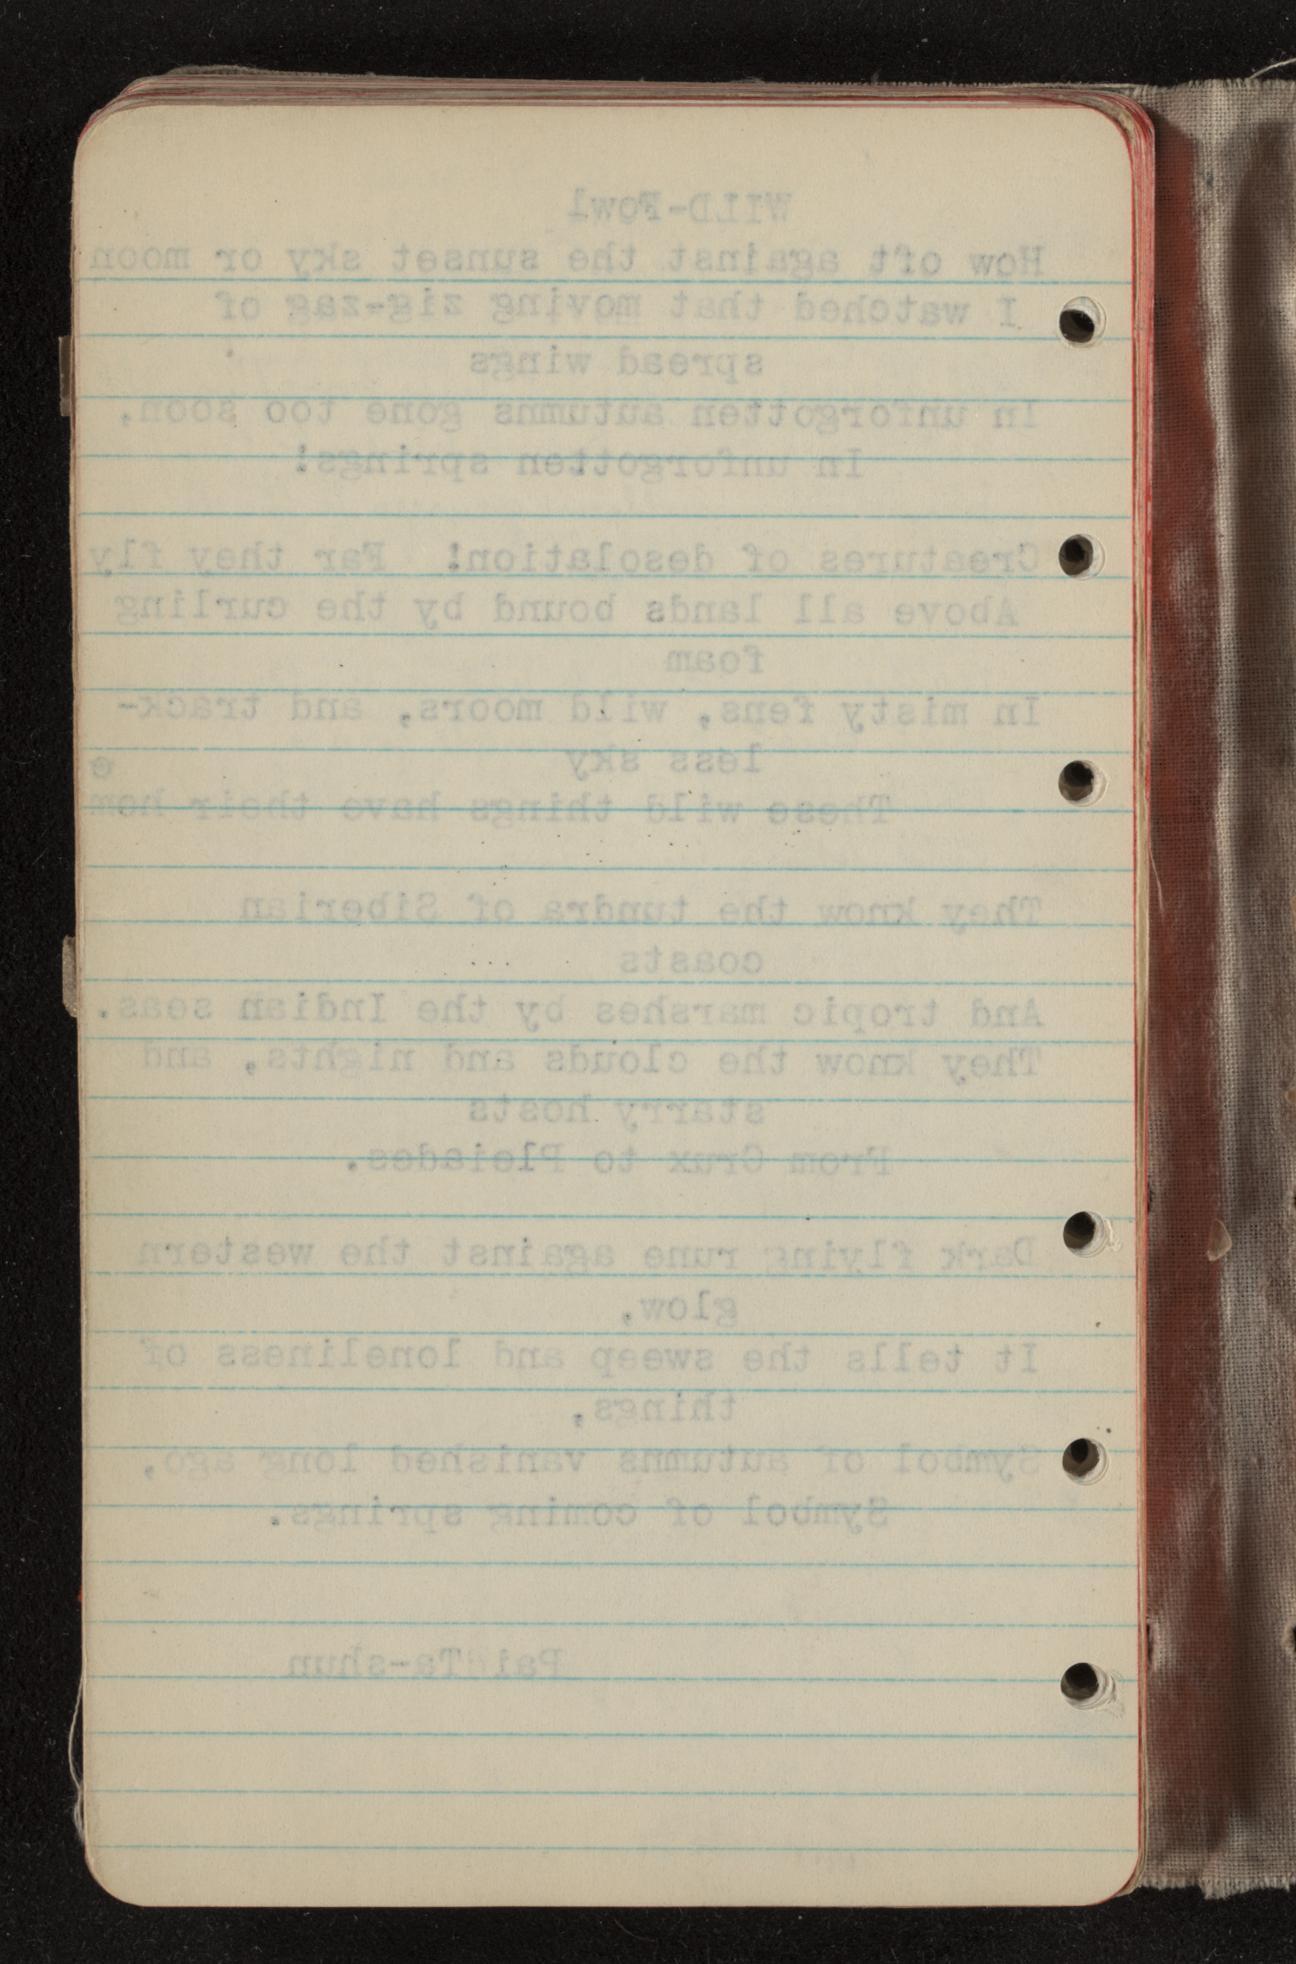 WILD-Fowl
How oft against the sunset sky or moon
I watched that moving zig-zag of
spread wings
In unforgotten autumns gone too soon,
In unforgotten springs!
Creatures of desolation! Far they fly
Above all lands bound by the curling
foam
In misty fens, wild moors, and track-
less sky
These wild things have their home
They know the tundra of Siberian
coasts
And tropic marshes by the Indian seas.
They know the clouds and nights, and
starry hosts
From Crux to Pleiades.
Dark flying rune against the western
glow,
It tells the sweep and loneliness of
things,
Symbol of autumns vanished long ago,
Symbol of coming springs.
Pai Ta-shun